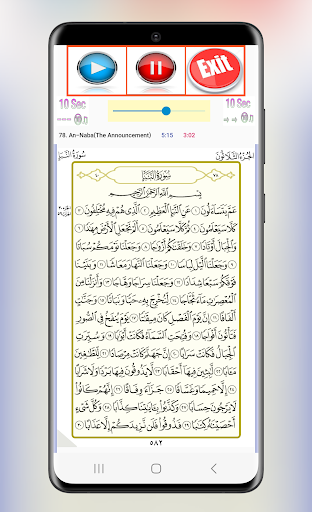 Exit
10 Sec
10 Sec
78. An-Naba(The Announcement) 5:15 3:02
سُورَةُ النَّبَإِ
الجُزْءُ الثَّلَاثُونَ
سُورَةُ النَّبَإِ
بِسْمِ ٱللَّهِ ٱلرَّحْمَٰنِ ٱلرَّحِيمِ
عَمَّ يَتَسَآءَلُونَ ١ عَنِ ٱلنَّبَإِ ٱلْعَظِيمِ ٢ ٱلَّذِى هُمْ فِيهِ مُخْتَلِفُونَ ٣
كَلَّا سَيَعْلَمُونَ ٤ ثُمَّ كَلَّا سَيَعْلَمُونَ ٥ أَلَمْ نَجْعَلِ ٱلْأَرْضَ مِهَٰدًا ٦
وَٱلْجِبَالَ أَوْتَادًا ٧ وَخَلَقْنَٰكُمْ أَزْوَٰجًا ٨ وَجَعَلْنَا نَوْمَكُمْ سُبَاتًا ٩
وَجَعَلْنَا ٱلَّيْلَ لِبَاسًا ١٠ وَجَعَلْنَا ٱلنَّهَارَ مَعَاشًا ١١ وَبَنَيْنَا
فَوْقَكُمْ سَبْعًا شِدَادًا ١٢ وَجَعَلْنَا سِرَاجًا وَهَّاجًا ١٣ وَأَنزَلْنَا مِنَ
ٱلْمُعْصِرَٰتِ مَآءً ثَجَّاجًا ١٤ لِّنُخْرِجَ بِهِۦ حَبًّا وَنَبَاتًا ١٥ وَجَنَّٰتٍ
أَلْفَافًا ١٦ إِنَّ يَوْمَ ٱلْفَصْلِ كَانَ مِيقَٰتًا ١٧ يَوْمَ يُنفَخُ فِى ٱلصُّورِ
فَتَأْتُونَ أَفْوَاجًا ١٨ وَفُتِحَتِ ٱلسَّمَآءُ فَكَانَتْ أَبْوَٰبًا ١٩ وَسُيِّرَتِ
ٱلْجِبَالُ فَكَانَتْ سَرَابًا ٢٠ إِنَّ جَهَنَّمَ كَانَتْ مِرْصَادًا ٢١ لِّلطَّٰغِينَ
مَـَٔابًا ٢٢ لَّٰبِثِينَ فِيهَآ أَحْقَابًا ٢٣ لَّا يَذُوقُونَ فِيهَا بَرْدًا وَلَا شَرَابًا
٢٤ إِلَّا حَمِيمًا وَغَسَّاقًا ٢٥ جَزَآءً وِفَاقًا ٢٦ إِنَّهُمْ كَانُوا۟
لَا يَرْجُونَ حِسَابًا ٢٧ وَكَذَّبُوا۟ بِـَٔايَٰتِنَا كِذَّابًا ٢٨ وَكُلَّ شَىْءٍ
أَحْصَيْنَٰهُ كِتَٰبًا ٢٩ فَذُوقُوا۟ فَلَن نَّزِيدَكُمْ إِلَّا عَذَابًا ٣٠
٥٨٢